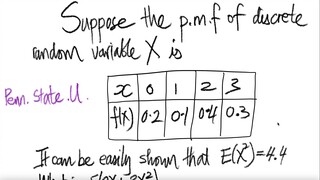 Suppose the p.m.f of discrete
random variable X is
Penn. State. U.
x 0 1 2 3
f(x) 0.2 0.1 0.4 0.3
It can be easily shown that E(X²)=4.4